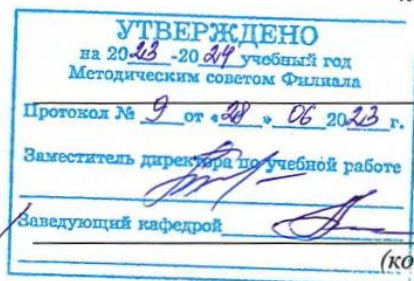 УТВЕРЖДЕНО
на 2023-2024 учебный год
Методическим советом Филиала
Протокол № 9 от «28» 06 2023 г.
Заместитель директора по учебной работе
Заведующий кафедрой
(ко